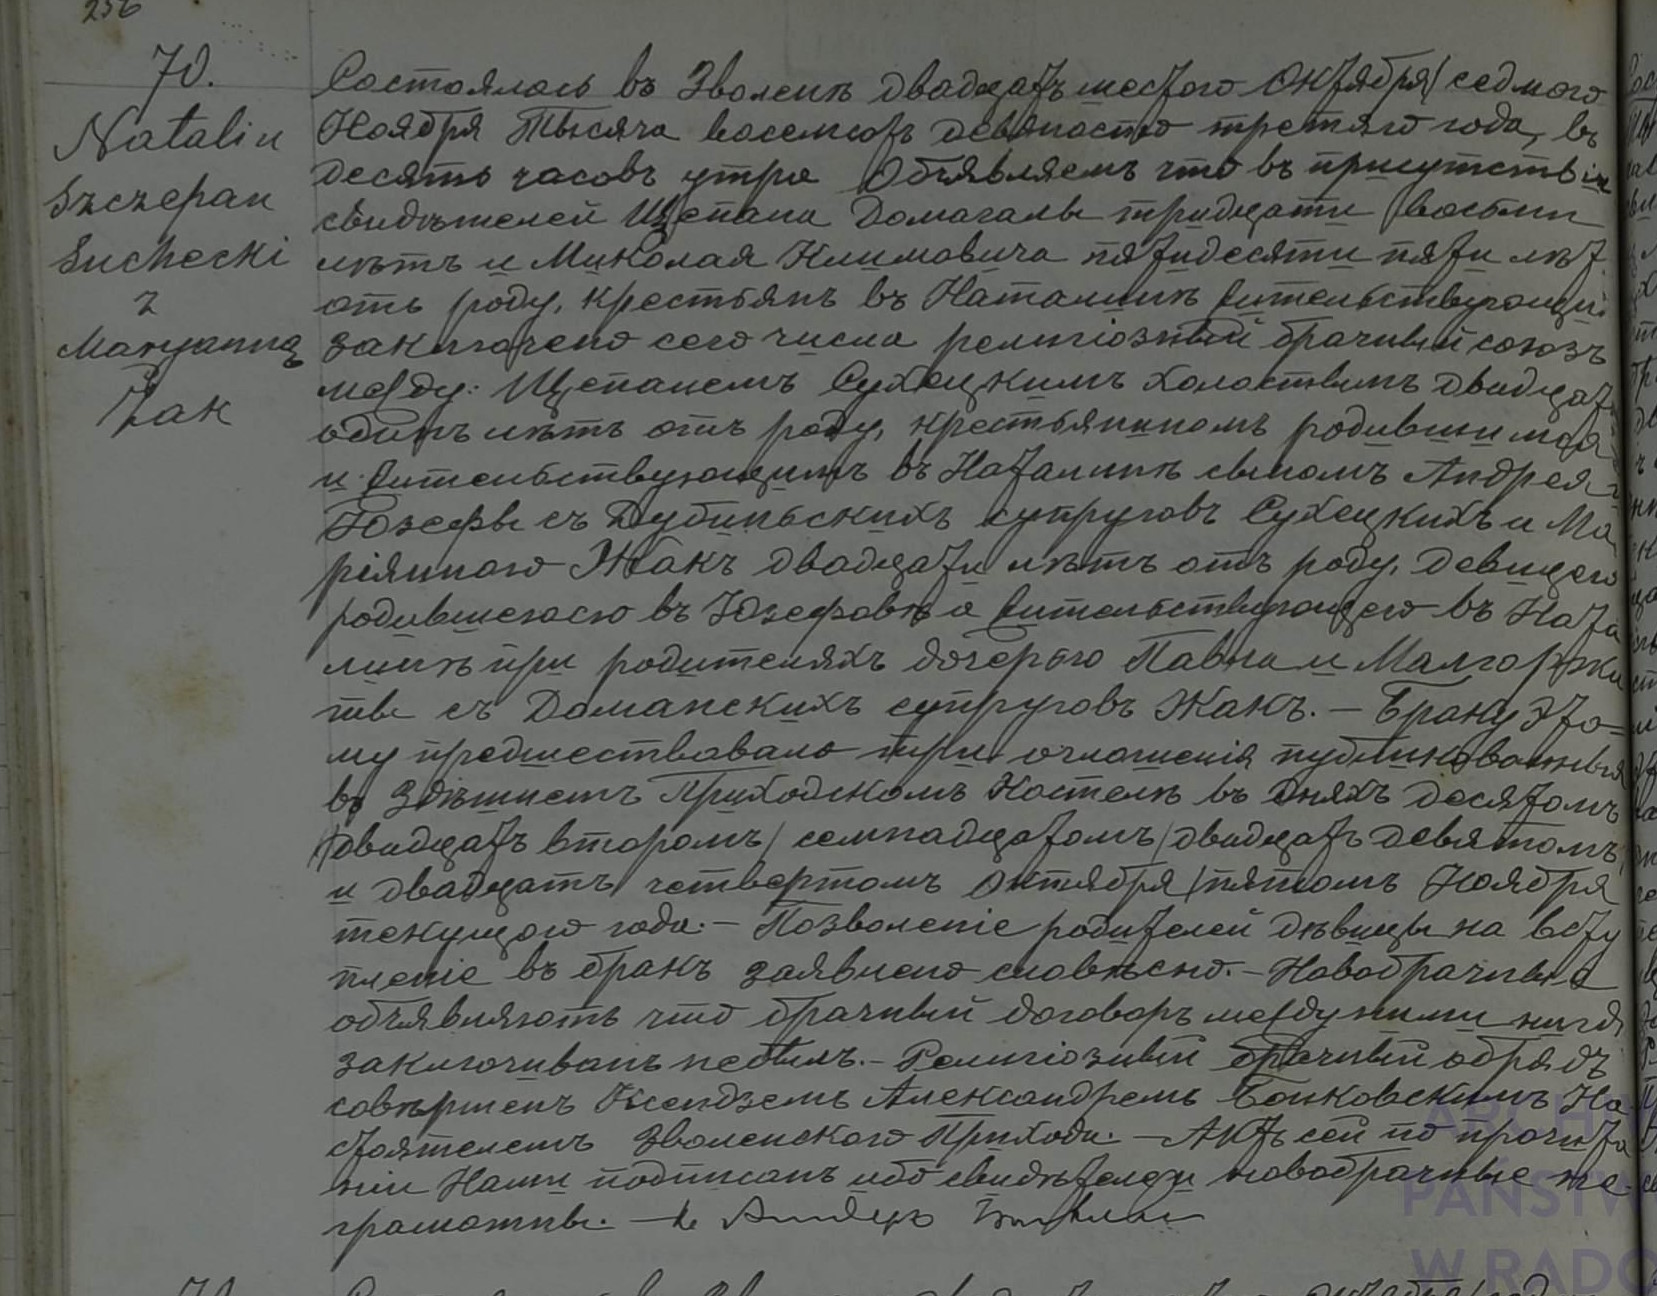 256
70.
Natalin
Szczepan
Suchecki
z
Maryanną
Żak
Состоялось въ Зволенѣ двадцать шестого Октября/ седмого
Ноября Тысяча восемсотъ девяносто третяго года, въ
десять часовъ утра Объявляемъ что въ присутствіи
свидѣтелей Щепана Домагалы тридцати восьми
лѣтъ и Миколая Климовича пятидесяти пяти лѣт
отъ роду, крестьянъ въ Наталинѣ жительствующихъ
заключено сего числа религіозный брачный союзъ
между: Щепанемъ Сухецкимъ холостымъ двадцать
одинъ лѣтъ отъ роду, крестьяниномъ родившимся
и жительствующимъ въ Наталинѣ сыномъ Андрея и
Юзефы съ Дубильскихъ супруговъ Сухецкихъ и Ма
ріянною Жакъ двадцати лѣтъ отъ роду, девицею
родившеюсю въ Юзефовѣ и жительствующею въ Ната
линѣ при родителяхъ дочерью Павла и Малгоржа
ты съ Доманскихъ супруговъ Жакъ. — Браку Это=
му предшествовало три оглошенія публикованныя
въ Здѣшнемъ Приходскомъ Костелѣ въ дняхъ десятомъ
/двадцать второмъ/ семнадцатомъ/ двадцать девятомъ/
и двадцать четвертомъ Октября/ пятомъ Ноября
текущого года. — Позволеніе родителей дѣвицы на всту
пленіе въ бракъ заявлено словѣсно. — Новобрачные
объявляютъ что брачный договоръ между ними
заключиванъ небылъ. — Религіозный брачный обрядъ
совѣршенъ Ксендземъ Александремъ Бонковскимъ На
стоятелемъ Зволенского Прихода. — Актъ сей по прочита
ніи Нами подписанъ ибо свидѣтели и новобрачные не=
грамотны. —
ARCHIW
PAŃSTW
W RADO